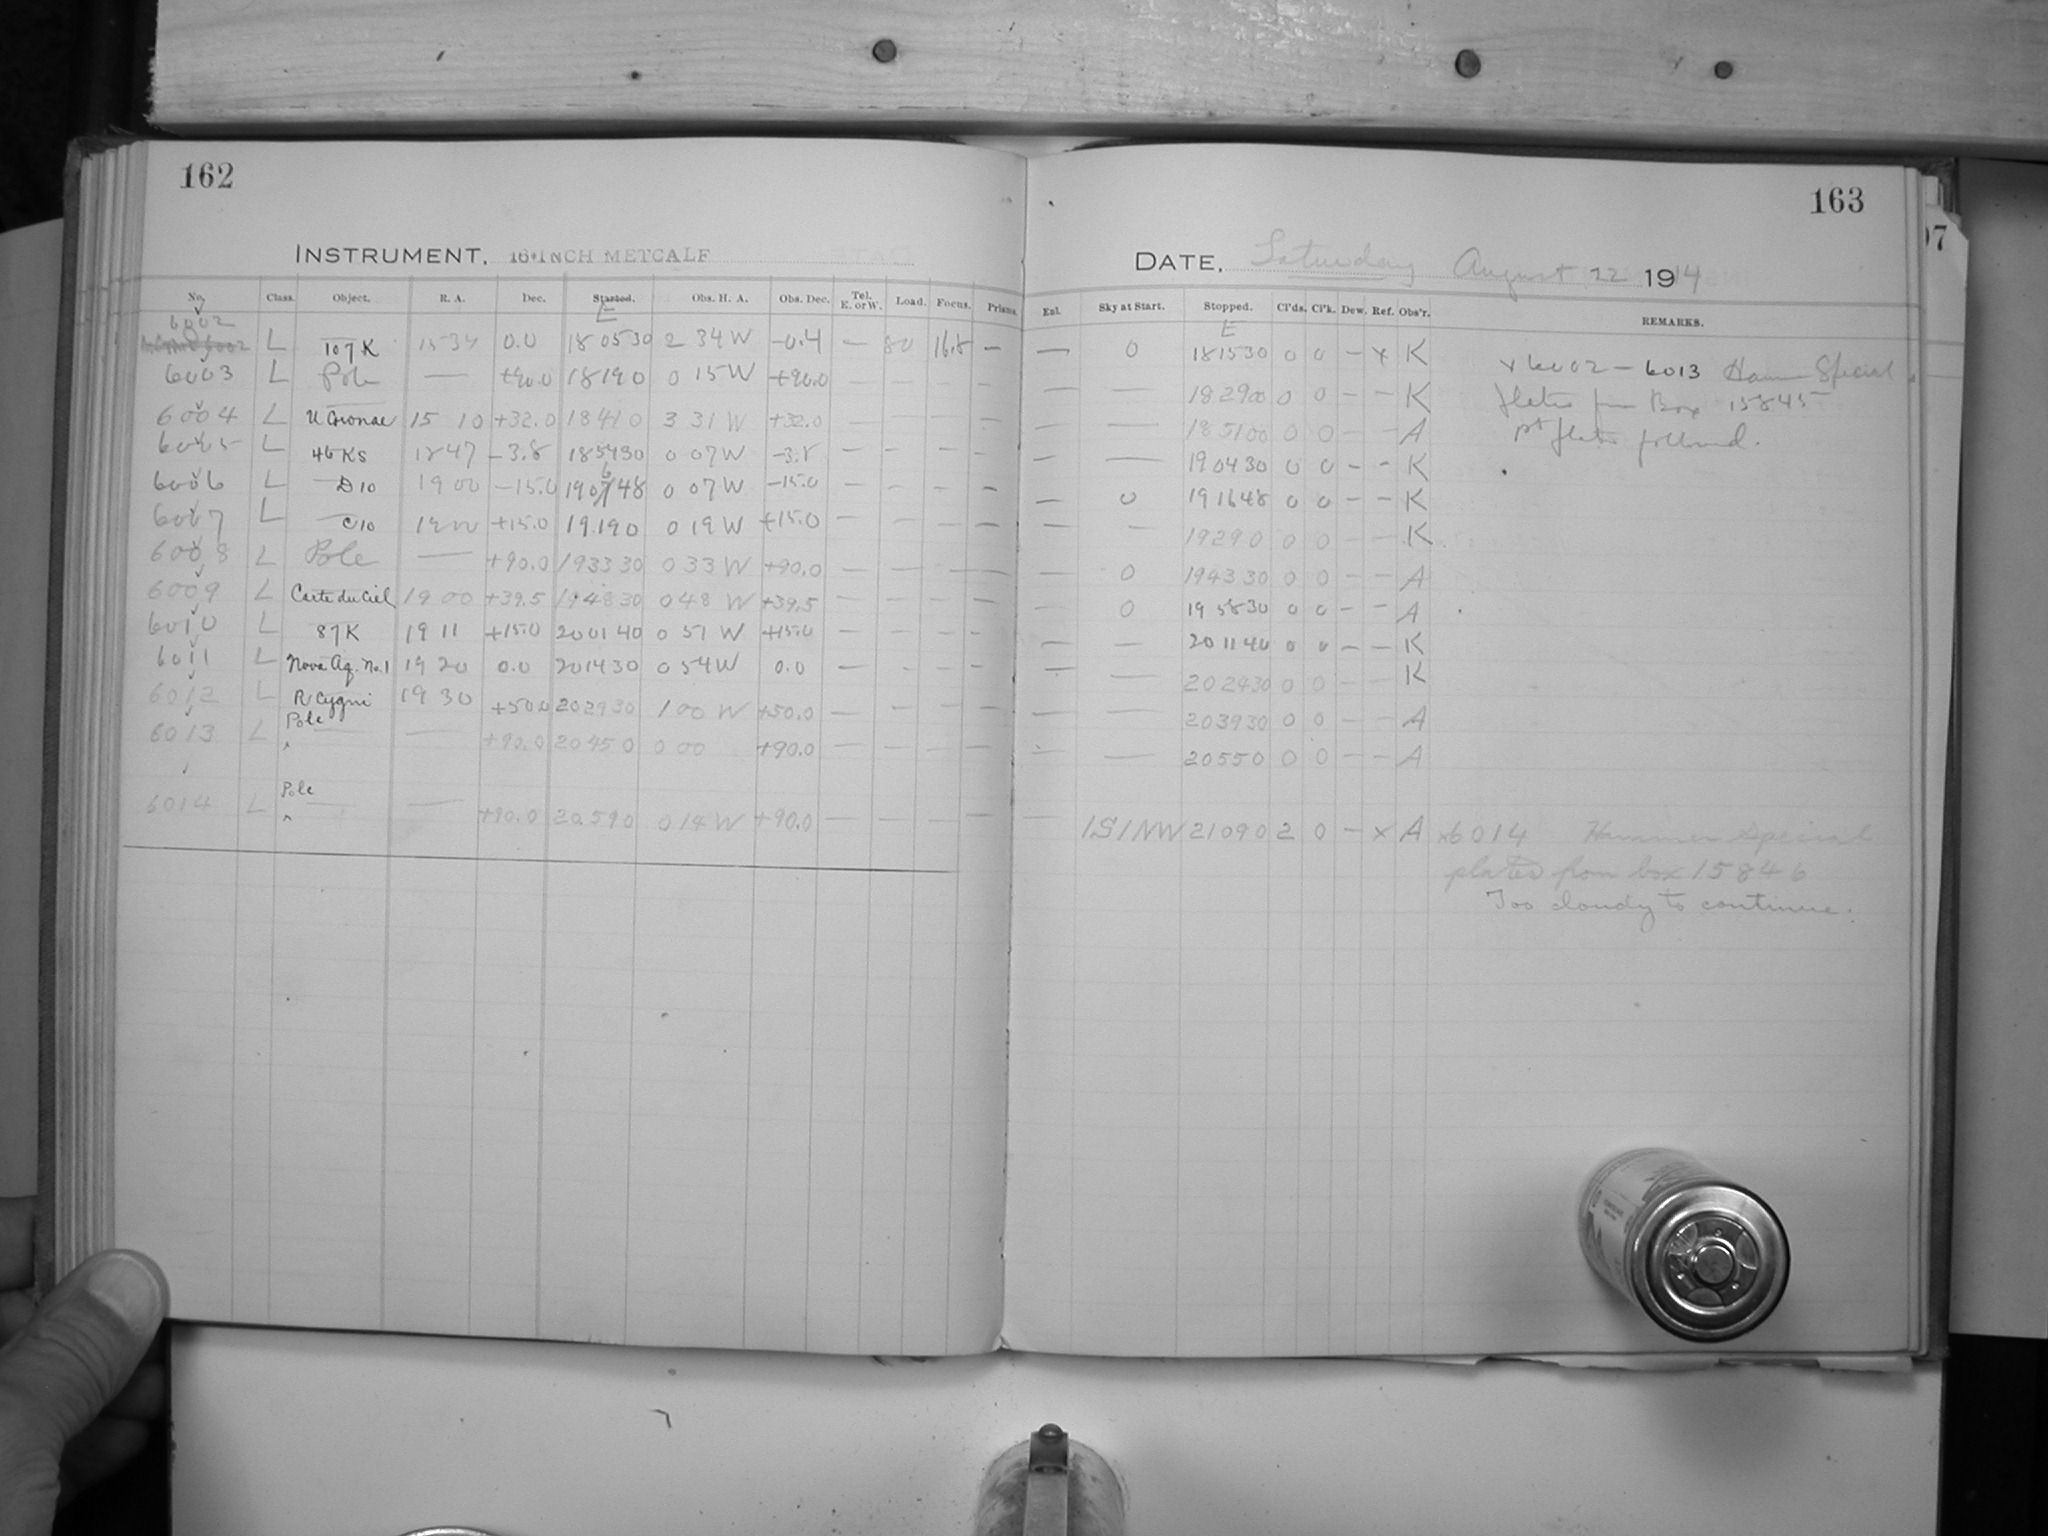 162
163
07
INSTRUMENT, 16-INCH METCALF
DATE, Saturday August 22 1914
No. Class. Object. R. A. Dec. Started. Obs. H. A. Obs. Dec. Tel. E. or W. Load. Focus. Prisms. Enl. Sky at Start. Stopped. Cl'ds. Cl'k. Dew. Ref. Obs'r. REMARKS.
E E
6002 L 107K 15 34 0.0 18 05 30 2 34 W -0.4 — 80 16.8 — — 0 18 15 30 0 0 — x K x 6002 – 6013 Special
6003 L Pole — +90.0 18 19 0 0 15 W +90.0 — — — — — — 18 29 00 0 0 — — K plates from Box 15845
6004 L U Coronae 15 10 +32.0 18 41 0 3 31 W +32.0 — — — — — — 18 51 00 0 0 — — A
6005 L 46 KS 18 47 -3.8 18 54 30 0 07 W -3.8 — — — — — — 19 04 30 0 0 — — K
6006 L D10 19 00 -15.0 19 06 48 0 07 W -15.0 — — — — — 0 19 16 48 0 0 — — K
6007 L C10 19 00 +15.0 19 19 0 0 19 W +15.0 — — — — — — 19 29 0 0 0 — — K
6008 L Pole — +90.0 19 33 30 0 33 W +90.0 — — — — — 0 19 43 30 0 0 — — A
6009 L Carte du Ciel 19 00 +39.5 19 48 30 0 48 W +39.5 — — — — — 0 19 58 30 0 0 — — A
6010 L 87K 19 11 +15.0 20 01 40 0 51 W +15.0 — — — — — — 20 11 40 0 0 — — K
6011 L Nova Aq. No.1 19 20 0.0 20 14 30 0 54 W 0.0 — — — — — — 20 24 30 0 0 — — K
6012 L R Cygni 19 30 +50.0 20 29 30 1 00 W +50.0 — — — — — — 20 39 30 0 0 — — A
6013 L Pole — +90.0 20 45 0 0 00 +90.0 — — — — — — 20 55 0 0 0 — — A
6014 L Pole — +90.0 20 59 0 0 14 W +90.0 — — — — — 1S1NW 21 09 0 2 0 — x A x6014 Hammer Special
plates from box 15846
Too cloudy to continue.